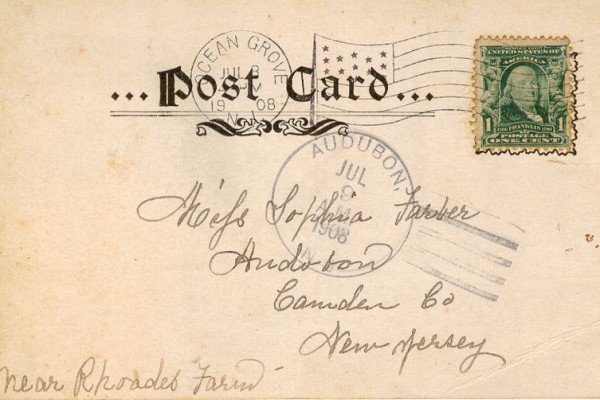 OCEAN GROVE
JUL 8
M
19 08
N.
...Post Card...
UNITED STATES OF
AMERICA
FRANKLIN
1 POSTAGE 1
ONE CENT
AUDUBON,
JUL
9
A.M.
1908
N.
Miss Sophia Farber
Audobon
Camden Co
New Jersey
near Rhoades Farm